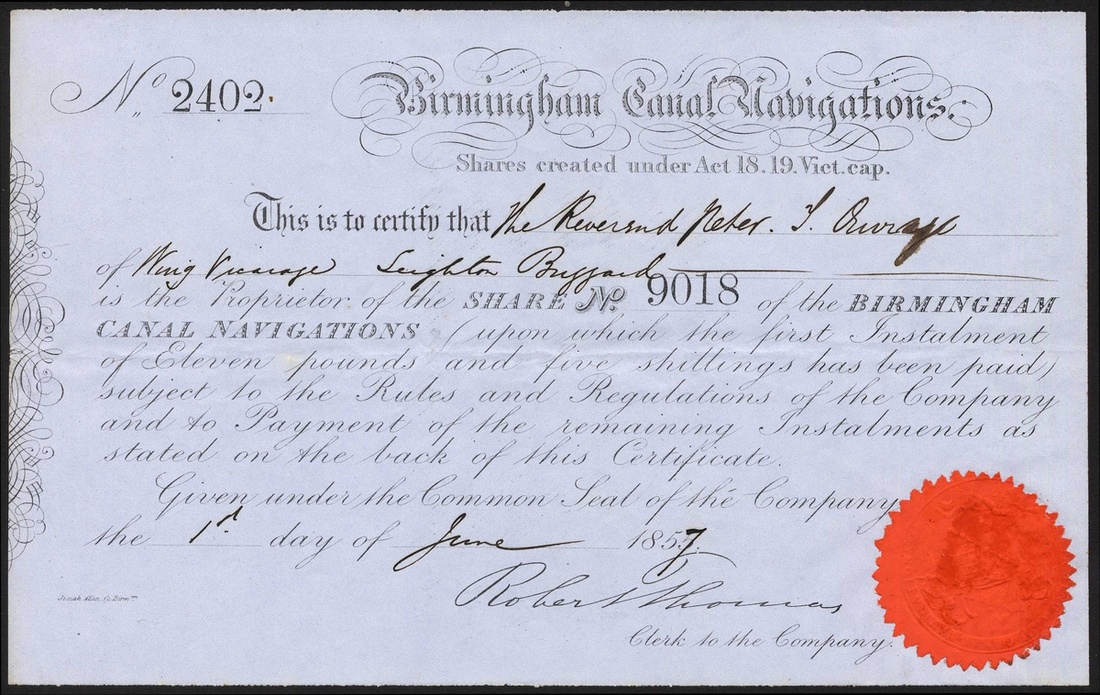 No 2402.
Birmingham Canal Navigations.
Shares created under Act 18.19.Vict.cap.
This is to certify that The Reverend Peter. T. Ouvry
of Wing Vicarage Leighton Buzzard
is the Proprietor of the SHARE No. 9018 of the BIRMINGHAM
CANAL NAVIGATIONS (upon which the first Instalment
of Eleven pounds and five shillings has been paid)
subject to the Rules and Regulations of the Company
and to Payment of the remaining Instalments as
stated on the back of this Certificate.
Given under the Common Seal of the Company
the 1st day of June 1857
Robert Thomas
Clerk to the Company.
Josiah Allen Co Birmm